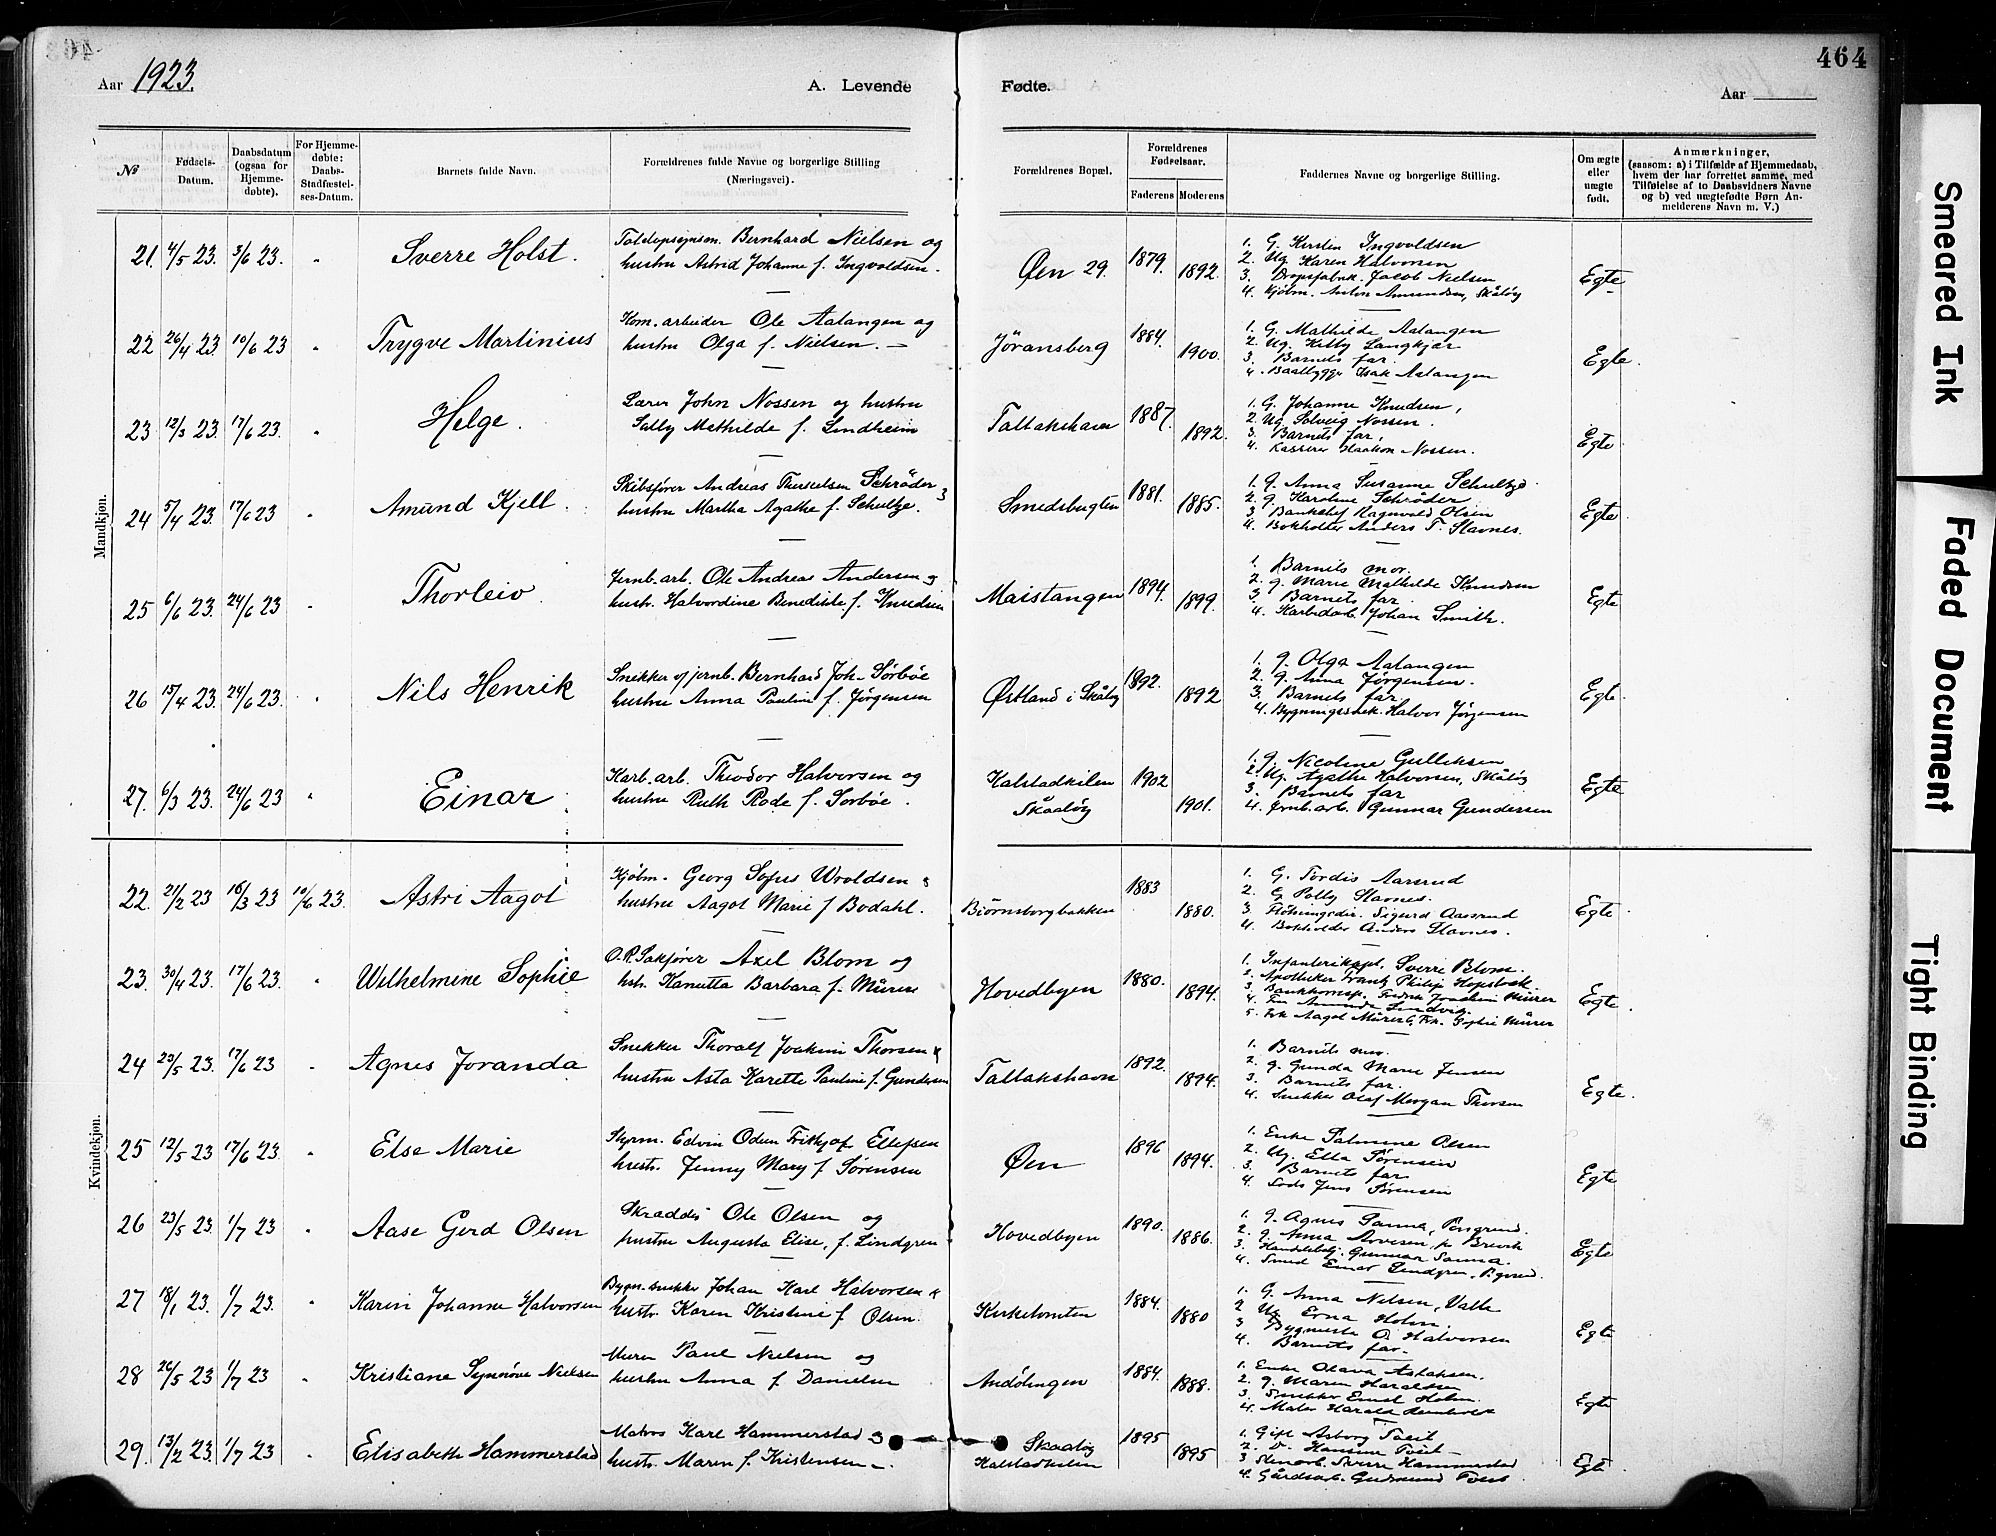 464
Aar 1923.
A. Levende
Fødte.
Aar
№
Fødsels-Datum.
Daabsdatum (ogsaa for Hjemmedøbte).
For Hjemmedøbte: Daabs-Stadfæstelses-Datum.
Barnets fulde Navn.
Forældrenes fulde Navne og borgerlige Stilling (Næringsvei).
Forældrenes Bopæl.
Forældrenes Fødselsaar.
Faderens
Moderens
Faddernes Navne og borgerlige Stilling.
Om ægte eller uægte født.
Anmærkninger, (saasom: a) i Tilfælde af Hjemmedaab, hvem der har forrettet samme, med Tilføielse af to Daabsvidners Navne og b) ved uægtefødte Børn Anmelderens Navn m. V.)
Mandkjøn.
21. 4/5 23. 3/6 23. " Sverre Holst. Toldopsynsm. Bernhard Nielsen og
hustru Astrid Johanne f. Ingvoldsen. Øen 29. 1879. 1892.
1. G. Kirsten Ingvoldsen
2. Ug. Karen Halvorsen
3. Dropsfabrik. Jacob Nielsen
4. Kjøbm. Anton Amundsen, Skåtøy
Egte
22 26/4 23. 10/6 23 " Trygve Martinius Kom. arbeider Ole Aalangen og
hustru Olga f. Nielsen. Jöransberg 1884. 1900.
1. G. Mathilde Aalangen
2. Ug. Kitty Langkjær
3. Barnets far.
4. Baatbygger Isak Aalangen
Egte.
23 12/3 23. 17/6 23. " Helge. Lærer John Nossen og hustru
Sally Mathilde f. Lindheim Tallakshavn 1887. 1892.
1. G. Johanne Knudsen,
2. Ug. Solveig Nossen.
3. Barnets far,
4. Kasserer Haakon Nossen.
Egte
24 5/4 23. 17/6 23 " Amund Kjell. Skibsfører Andreas Schrøder
hustru Martha Agathe f. Schultze. Smedsbugten 1881. 1885.
1. g. Anna Susanne Schultze
2. g. Karoline Schrøder
3. Bankchef Ragnvald Olsen
4. Bokholder Anders T. Stavnes.
Egte
25 6/6 23. 24/6 23 " Thorleiv Jernb. arb. Ole Andreas Andersen
hustr. Halvordine Benedikte f. Knudsen Maistangen 1894. 1899.
1. Barnets mor.
2. g. Marie Mathilde Knudsen
3. Barnets far
4. Karbidarb. Johan Smith.
Egte
26 15/4 23. 24/6 23. " Nils Henrik Snekker v/ jernb. Bernhard Joh. Sørbøe
hustru Anna Pauline f. Jörgensen Østland i Skåtøy 1892. 1892
1. g. Olga Aalangen
2. g. Anna Jørgensen.
3. Barnets far
4. Bygningssnek. Halvor Jørgensen
Egte
27. 6/3 23. 24/6 23 " Einar Karb. arb. Theodor Halvorsen og
hustru Ruth Rode f. Sorbøe. Kalstadkilen Skåatöy 1902 1901.
1. g. Nicoline Gulliksen
2. Ug. Agathe Halvorsen, Skåtöy
3. Barnets far
4. Jernb. arb. Gunnar Gundersen
Egte
Kvindekjøn.
22. 21/2 23 18/3 23 10/6 23. Astri Aagot Kjøbm. Georg Sofus Wroldsen &
hustru Aagot Marie f Bodahl. Björnsborgbakken 1883 1880.
1. G. Tordis Aarsrud
2. G Polly Stavnes.
3. Fløtningsdir. Sigurd Aasrud
4. Bokholder Anders Stavnes.
Egte
23. 30/4 23. 17/6 23. " Wilhelmine Sophie O.R. Sakfører Axel Blom og
hstr. Kanutta Barbara f. Mürer Hovedbyen 1880. 1894.
1. Infanterikapt. Sverre Blom.
2. Apotheker Frantz Philip Hopstock
3. Bankkornsp. Fredrik Joachim Mürer
4. Lindvig.
5. Frk Aagot Mürer 6. Frk. Sophie Mürer
Egte.
24 23/5 23. 17/6 23 " Agnes Joranda Snekker Thoralf Joakim Thorsen &
hustru Asta Karette Pauline f. Gundersen Tallakshavn 1892. 1894.
1. Barnets mor.
2. g. Gunda Marie Jensen
3. Barnets far.
4. Snekker Olaf Morgan Thorsen
Egte.
25 12/5 23 17/6 23. " Else Marie Styrm. Edvin Odin Fritjof Ellefsen
hustr. Jenny Mary f. Sørensen Øen 1896 1894.
1. Enke Palmine Olsen
2. Ug. Ella Sørensen
3. Barnets far
4. Lods Jens Sørensen
Egte
26 23/5 23. 1/7 23 " Aase Gerd Olsen Skrædder Ole Olsen og
hustru Augusta Elise, f. Lindgren Hovedbyen 1890. 1886.
1. g. Agnes Sanna, Porsgrund.
2. g. Anna Brevik
3. Gunnar Sanna.
4. Smed Einar Lindgren.
Egte
27 18/1 23. 1/7 23. " Karin Johanne Halvorsen Bygn. snekker Johan Karl Halvorsen &
hustr. Karen Kristine f Olsen. Kirketomten 1884. 1880
1. G. Anna Nilsen, Valle
2 Ug Erna Holm
3 Bygmester O. Halvorsen
4. Barnets far.
Egte
28 26/5 23 1/7 23 " Kristiane Synnöve Nielsen Murer Paul Nielsen og
hustru Anna f. Danielsen Andölingen 1884. 1888.
1. Enke Olava Aslaksen.
2. g. Maren Haraldsen
3. Snekker Ernst Holm.
4. Maler Harald
Egte
29. 13/2 23. 1/7 23 " Elisabeth Hammerstad Matros Karl Hammerstad
hustr. Maren f. Kristensen. Skaatöy Kalstadkilen 1895 1895
1. Gift Asborg Tveit
2. D. Hansine Tveit
3. Stenarb. Sverre Hammerstad
4. Gårdsarb. Gudmund Tveit
Egte
Smeared Ink
Faded Document
Tight Binding